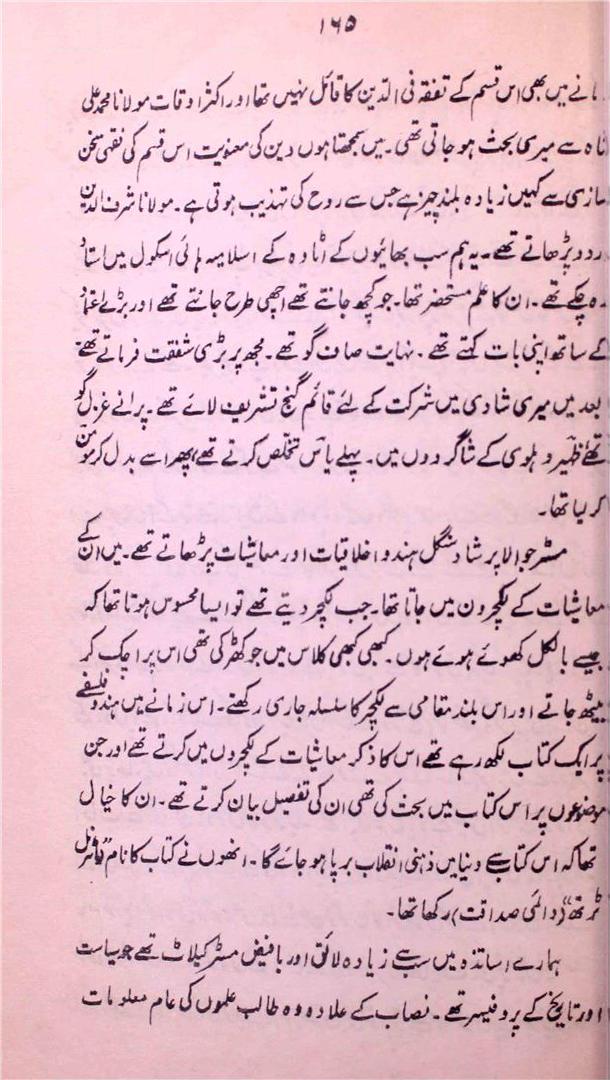 ۱۶۵
مانے میں بھی اس قسم کے تفقہ فی الدین کا قائل نہیں تھا اور اکثر اوقات مولانا محمد علی
شاہ سے میری بحث ہو جاتی تھی۔ میں سمجھتا ہوں دین کی معنویت اس قسم کی فقہی سخن
سازی سے کہیں زیادہ بلند چیز ہے جس سے روح کی تہذیب ہوتی ہے۔ مولانا شرف الدین
اردو پڑھاتے تھے۔ یہ ہم سب بھائیوں کے اٹاوہ کے اسلامیہ ہائی اسکول میں استاد
رہ چکے تھے۔ ان کا علم مستحضر تھا۔ جو کچھ جانتے تھے اچھی طرح جانتے تھے اور بڑے اعتماد
کے ساتھ اپنی بات کہتے تھے۔ نہایت صاف گو تھے۔ مجھ پر بڑی شفقت فرماتے تھے
بعد میں میری شادی میں شرکت کے لئے قائم گنج تشریف لائے تھے۔ پرانے غزل گو
تھے ظہیر دہلوی کے شاگردوں میں۔ پہلے یاس تخلص کرتے تھے، پھر اسے بدل کر مومن
کر لیا تھا۔
مسٹر جوالا پرشاد سنگل ہندو اخلاقیات اور معاشیات پڑھاتے تھے۔ میں ان کے
معاشیات کے لکچروں میں جاتا تھا۔ جب لکچر دیتے تھے تو ایسا محسوس ہوتا تھا کہ
جیسے بالکل کھوئے ہوئے ہوں۔ کبھی کبھی کلاس میں جو کھڑکی تھی اس پر اچک کر
بیٹھ جاتے اور اس بلند مقامی سے لکچر کا سلسلہ جاری رکھتے۔ اس زمانے میں ہندو فلسفے
پر ایک کتاب لکھ رہے تھے اس کا ذکر معاشیات کے لکچروں میں کرتے تھے اور جن
موضوعوں پر اس کتاب میں بحث کی تھی ان کی تفصیل بیان کرتے تھے۔ ان کا خیال
تھا کہ اس کتاب سے دنیا میں ذہنی انقلاب برپا ہو جائے گا۔ انھوں نے کتاب کا نام
ٹرتھ" (دائمی صداقت) رکھا تھا۔
ہمارے اساتذہ میں سب سے زیادہ لائق اور بافیض مسٹر کیلاٹ تھے جو سیاست
اور تاریخ کے پروفیسر تھے۔ نصاب کے علاوہ وہ طالب علموں کی عام معلومات